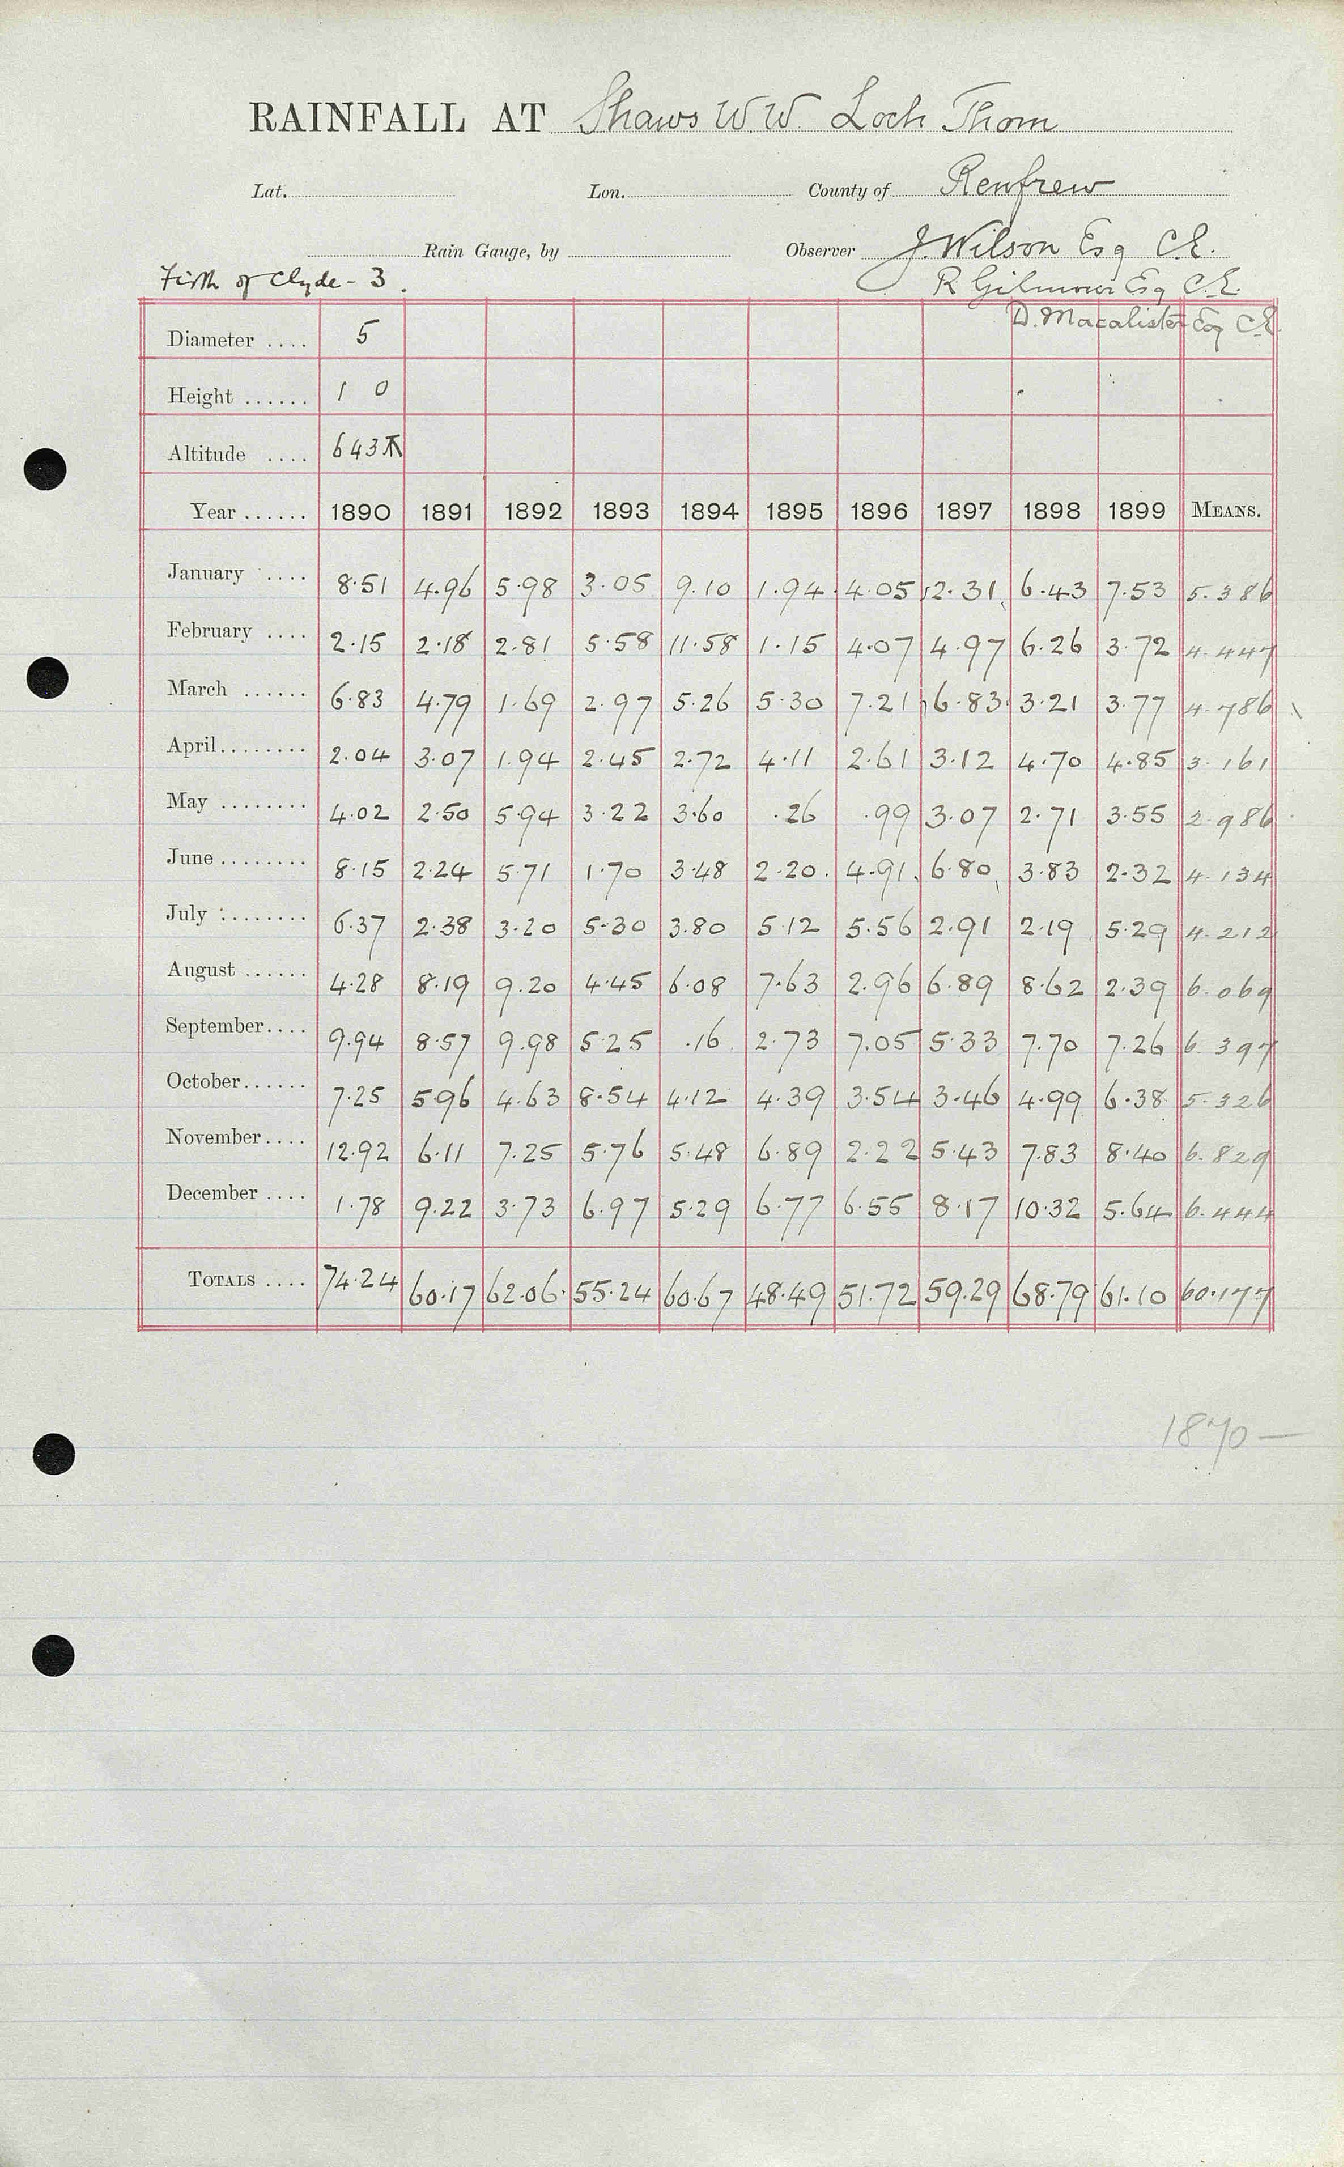 RAINFALL AT Shaws W.W. Loch Thom
Lat. Lon. County of Renfrew
Rain Gauge, by Observer J. Wilson Esq C.E.
Firth of Clyde - 3. R Gilmour Esq C.E.
D. Macalister Esq C.E.
Diameter .... 5
Height ...... 1 0
Altitude .... 643
Year ...... 1890 1891 1892 1893 1894 1895 1896 1897 1898 1899 MEANS.
January .... 8.51 4.96 5.98 3.05 9.10 1.94 4.05 2.31 6.43 7.53 5.386
February .... 2.15 2.18 2.81 5.58 11.58 1.15 4.07 4.97 6.26 3.72 4.447
March ...... 6.83 4.79 1.69 2.97 5.26 5.30 7.21 6.83 3.21 3.77 4.786
April........ 2.04 3.07 1.94 2.45 2.72 4.11 2.61 3.12 4.70 4.85 3.161
May ........ 4.02 2.50 5.94 3.22 3.60 .26 .99 3.07 2.71 3.55 2.986
June ........ 8.15 2.24 5.71 1.70 3.48 2.20 4.91 6.80 3.83 2.32 4.134
July ........ 6.37 2.38 3.20 5.30 3.80 5.12 5.56 2.91 2.19 5.29 4.212
August ...... 4.28 8.19 9.20 4.45 6.08 7.63 2.96 6.89 8.62 2.39 6.069
September.... 9.94 8.57 9.98 5.25 .16 2.73 7.05 5.33 7.70 7.26 6.397
October...... 7.25 5.96 4.63 8.54 4.12 4.39 3.54 3.46 4.99 6.38 5.326
November.... 12.92 6.11 7.25 5.76 5.48 6.89 2.22 5.43 7.83 8.40 6.829
December .... 1.78 9.22 3.73 6.97 5.29 6.77 6.55 8.17 10.32 5.64 6.444
TOTALS .... 74.24 60.17 62.06 55.24 60.67 48.49 51.72 59.29 68.79 61.10 60.177
1870 —